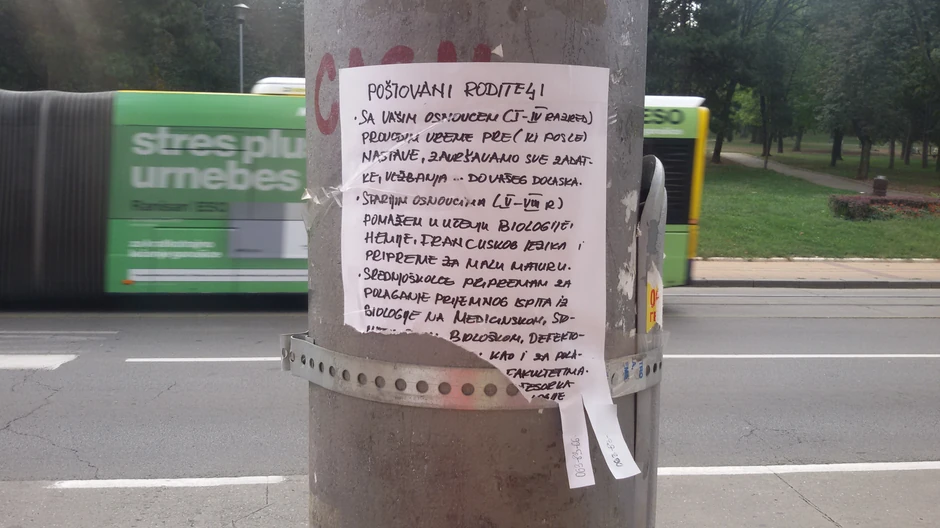 POŠTOVANI RODITELJI
• SA VAŠIM OSNOVCEM (I-IV RAZRED)
PROVODIM VREME PRE (ILI POSLE)
NASTAVE, ZAVRŠAVAMO SVE ZADAT-
KE, VEŽBANJA ... DO VAŠEG DOLASKA.
• STARIJIM OSNOVCIMA (V-VIII R)
POMAŽEM U UČENJU BIOLOGIJE,
HEMIJE, FRANCUSKOG JEZIKA I
PRIPREME ZA MALU MATURU.
• SREDNJOŠKOLCE PRIPREMAM ZA
POLAGANJE PRIJEMNOG ISPITA IZ
BIOLOGIJE NA MEDICINSKOM, STO-
BIOLOŠKOM, DEFEKTO-
KAO I ZA POLA-
FAKULTETIMA.
stres plu
urnebes
ESO